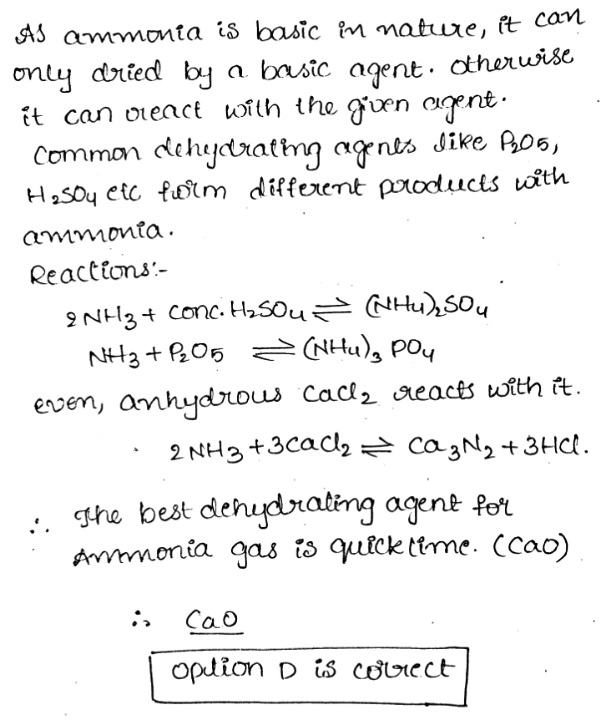 As ammonia is basic in nature, it can
only dried by a basic agent. otherwise
it can react with the given agent.
Common dehydrating agents like P2O5,
H2SO4 etc form different products with
ammonia.
Reactions:-
2NH3 + conc. H2SO4 ⇌ (NH4)2SO4
NH3 + P2O5 ⇌ (NH4)3 PO4
even, anhydrous CaCl2 reacts with it.
2NH3 + 3CaCl2 ⇌ Ca3N2 + 3HCl.
∴ The best dehydrating agent for
Ammonia gas is quicklime. (CaO)
∴ CaO
option D is correct